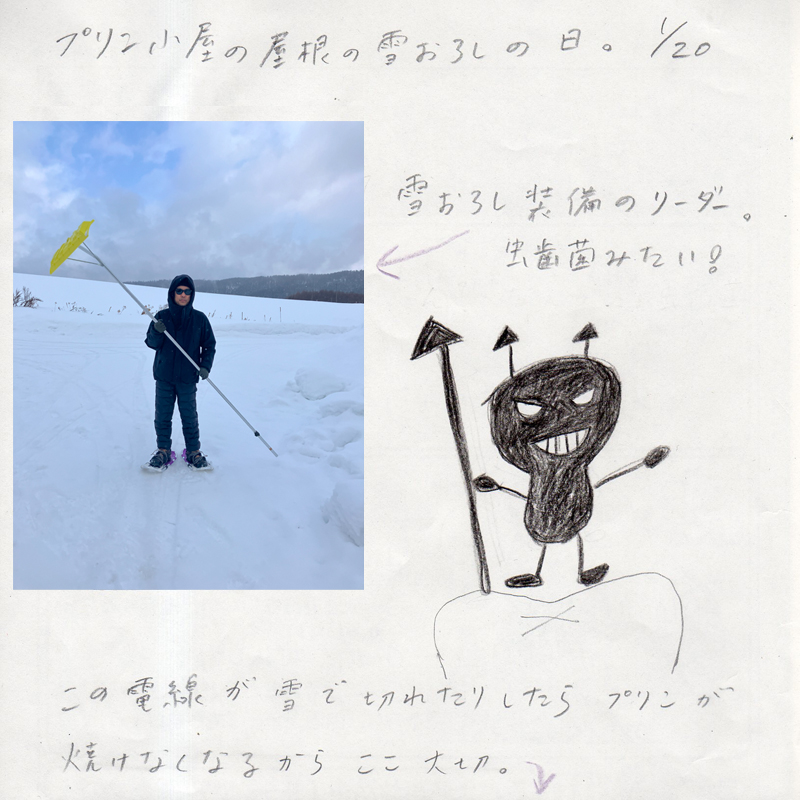 プリン小屋の屋根の雪おろしの日。 1/20
雪おろし装備のリーダー。
虫歯菌みたい!
この電線が雪で切れたりしたらプリンが
焼けなくなるからここ大切。